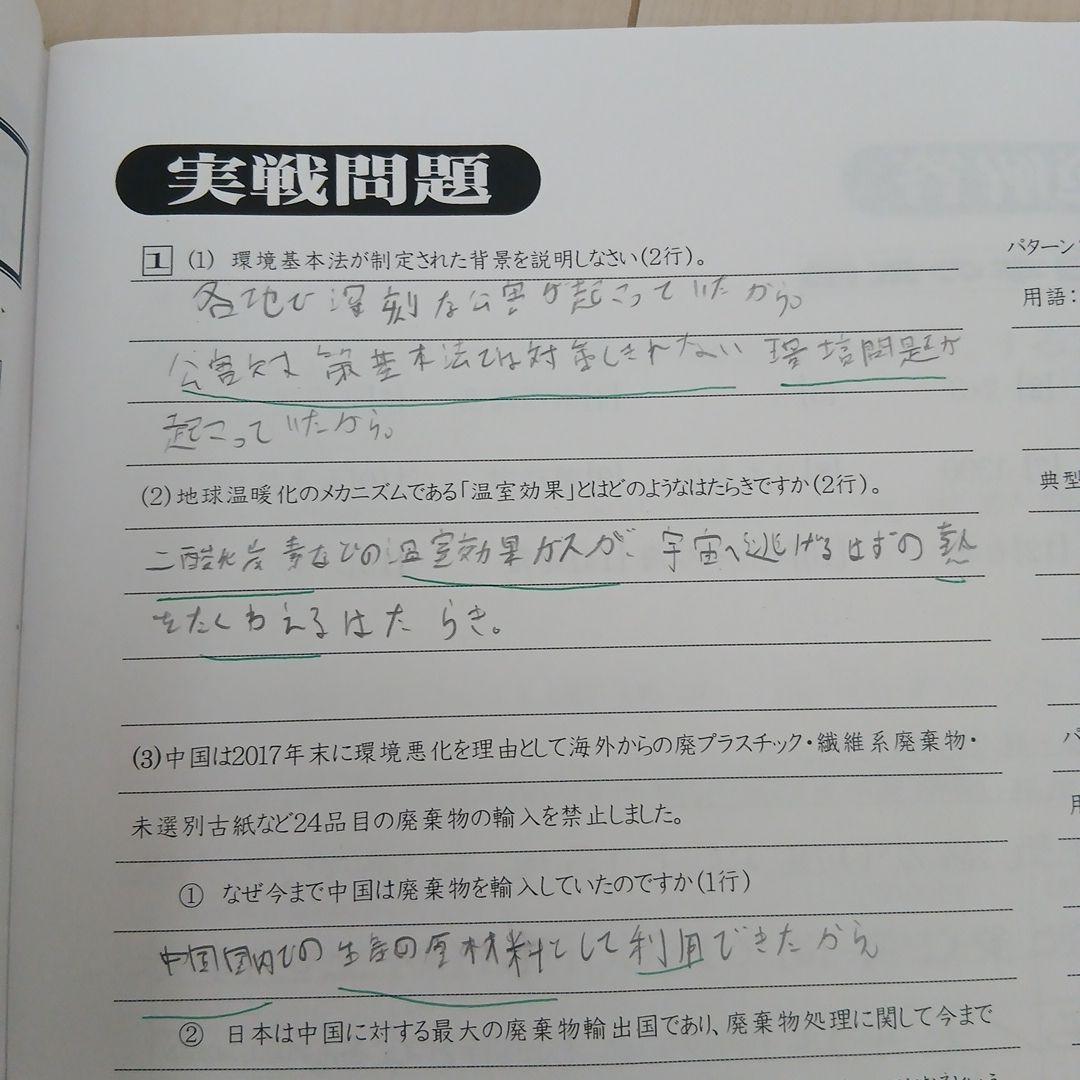 実戦問題
1 (1) 環境基本法が制定された背景を説明しなさい(2行)。
パターン
各地で深刻な公害が起こっていたから。
用語：
公害対策基本法では対応しきれない環境問題が
起こっていたから。
(2)地球温暖化のメカニズムである「温室効果」とはどのようなはたらきですか(2行)。
典型
二酸化炭素などの温室効果ガスが、宇宙へ逃げるはずの熱
をたくわえるはたらき。
(3)中国は2017年末に環境悪化を理由として海外からの廃プラスチック・繊維系廃棄物・
未選別古紙など24品目の廃棄物の輸入を禁止しました。
① なぜ今まで中国は廃棄物を輸入していたのですか(1行)
中国国内での生産の原材料として利用できたから
② 日本は中国に対する最大の廃棄物輸出国であり、廃棄物処理に関して今まで